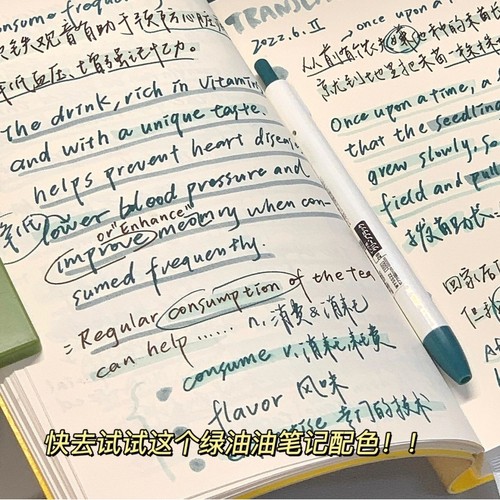 consume frequen
铁观音有助于预防心脏
低血压、增强记忆力。
the drink, rich in vitamin
and with a unique taste
helps prevent heart disease
降低 lower blood pressure and
or "Enhance"
improve memory when con-
sumed frequently.
= Regular consumption of the tea
can help ...... n. 消费&消耗
consume v. 消耗 耗费
flavor 风味
专门的技术
快去试试这个绿油油笔记配色！！
TRANSL
2022.6.Ⅱ
once upon a
从前有
Once upon a time, a
that the seedlin
grew slowly. So
field and pull
回家后
但